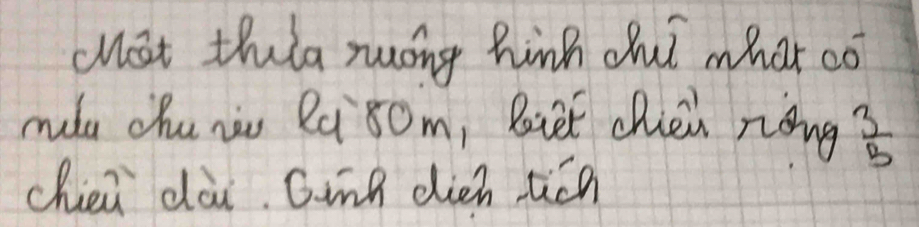 Một thửa ruộng hình chữ nhật có
nửa chu vi là 80m, biết chiều rộng 3/5
chiều dài. Tính diện tích